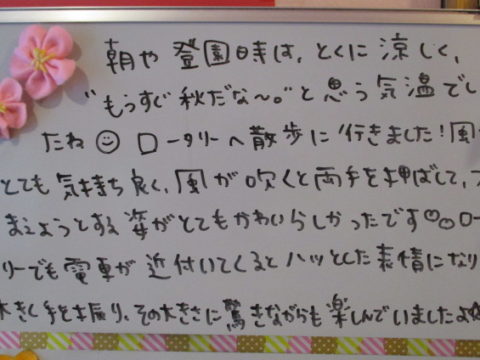 朝や登園時は、とくに涼しく、
"もうすぐ秋だな〜。"と思う気温でし
たね☺ ロータリーへ散歩に行きました!風
とても気持ち良く、風が吹くと両手を伸ばして、
まえようとする姿がとてもかわいらしかったです☺☺ロー
リーでも電車が近付いてくるとハッとした表情になり
大きく手を振り、その大きさに驚きながらも楽しんでいましたよ